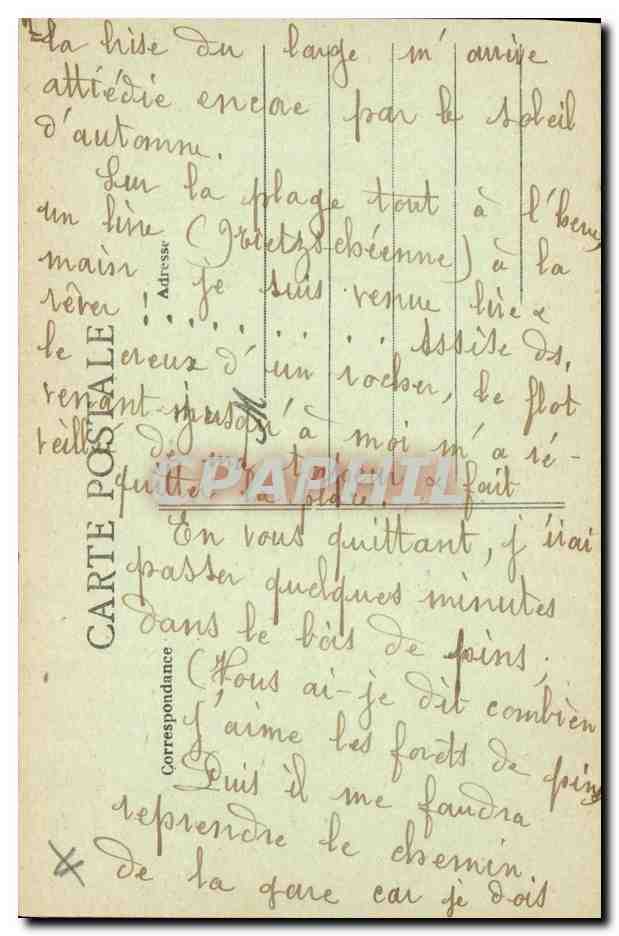 la brise du large m'arrive
attiédie encore par le soleil
d'automne.
Sur la plage tout à l'heure,
un livre (Nietzschéenne) à la
main je suis venue lire &
rêver ! . . . . . . . Assise ds.
le creux d'un rocher, le flot
venant jusqu'à moi m'a ré-
veillé de ma torpeur & fait
quitter la place.
En vous quittant, j'irai
passer quelques minutes
dans le bois de pins,
(Vous ai-je dit combien
j'aime les forêts de pins
Puis il me faudra
reprendre le chemin
de la gare car je dois
CARTE POSTALE
Adresse
Correspondance
CPAPHIL